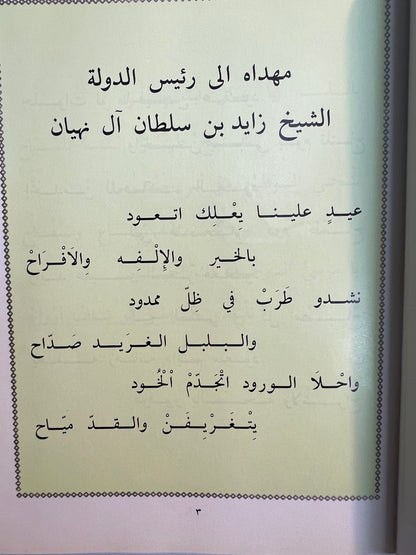 مهداه الى رئيس الدولة
الشيخ زايد بن سلطان آل نهيان
عيدٍ علينا يِعْلِك اتعود
بالخير والإِلْفِه وِالَافْرَاحْ
نشدو طَرَبْ في ظِلّ ممدود
والبلبل الغريد صَدّاح
واحْلَا الورود اتْجَدّمْ الْخُود
يِتْغَرِيفَنْ والقدّ ميّاح
٣